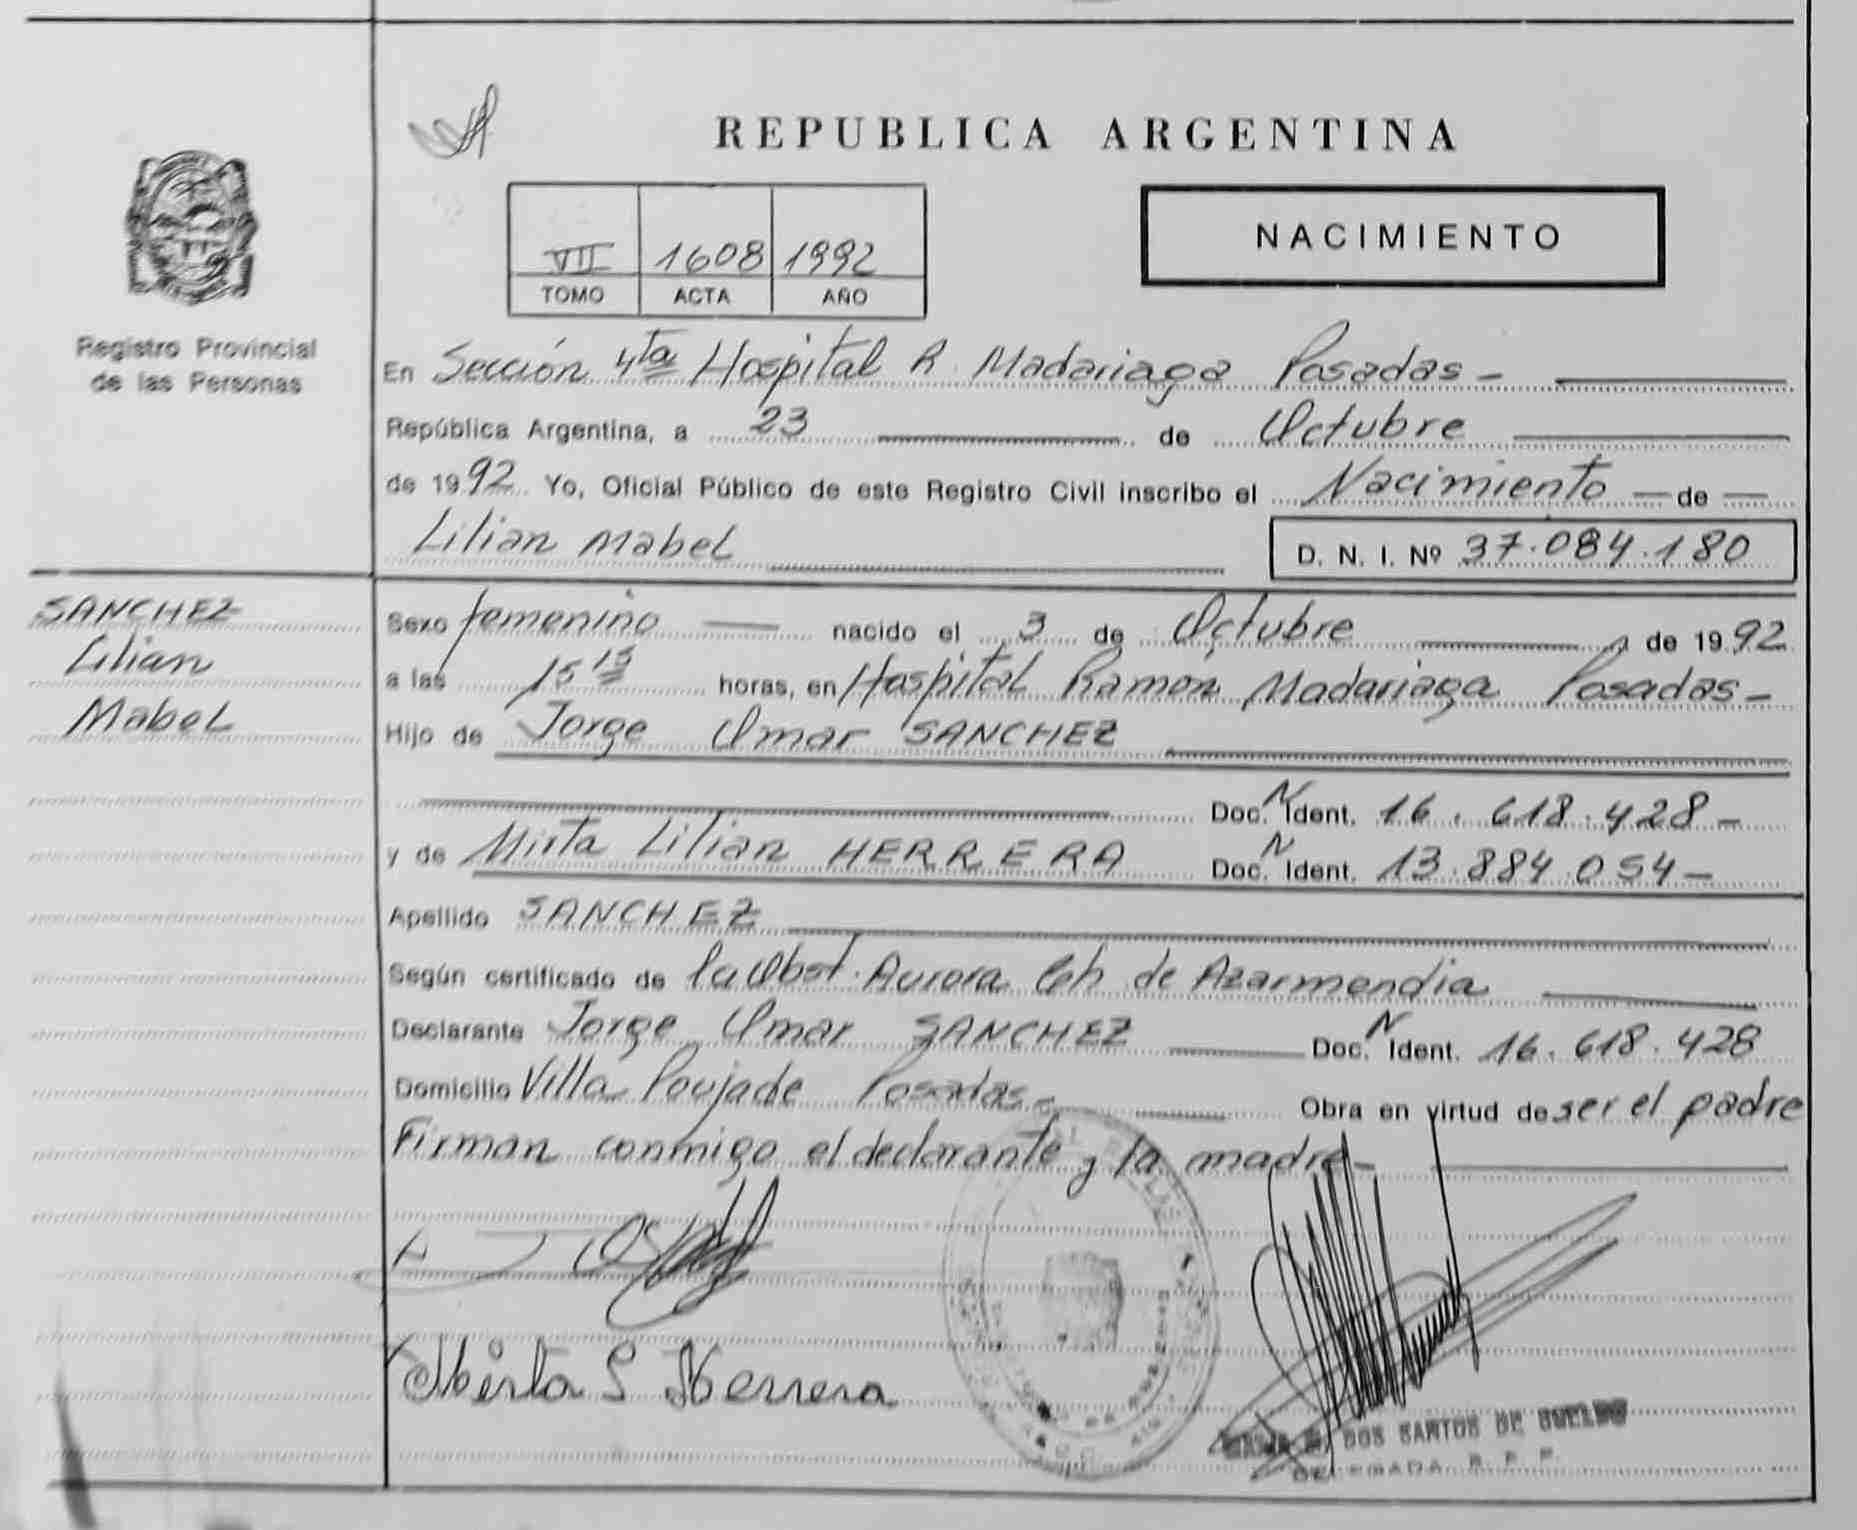 REPUBLICA ARGENTINA
NACIMIENTO
VII 1608 1992
TOMO ACTA AÑO
Registro Provincial
de las Personas
En Sección 4ta Hospital R. Madariaga Posadas -
República Argentina, a 23 de Octubre
de 1992 Yo, Oficial Público de este Registro Civil inscribo el Nacimiento — de —
Lilian Mabel D. N. I. Nº 37.084.180
SANCHEZ
Lilian
Mabel
Sexo femenino — nacido el 3 de Octubre de 1992
a las 15 15 horas, en Hospital Ramón Madariaga Posadas -
Hijo de Jorge Omar SANCHEZ
Doc. N Ident. 16.618.428 -
y de Mirta Lilian HERRERA Doc. N Ident. 13.884.054 -
Apellido SANCHEZ
Según certificado de la Obst. Aurora de Azarmendia
Declarante Jorge Omar SANCHEZ Doc. N Ident. 16.618.428
Domicilio Villa Poujade Posadas - Obra en virtud de ser el padre
Firman conmigo el declarante y la madre -
Mirta L Herrera
DOS SANTOS DE
DELEGADA R. P. P.